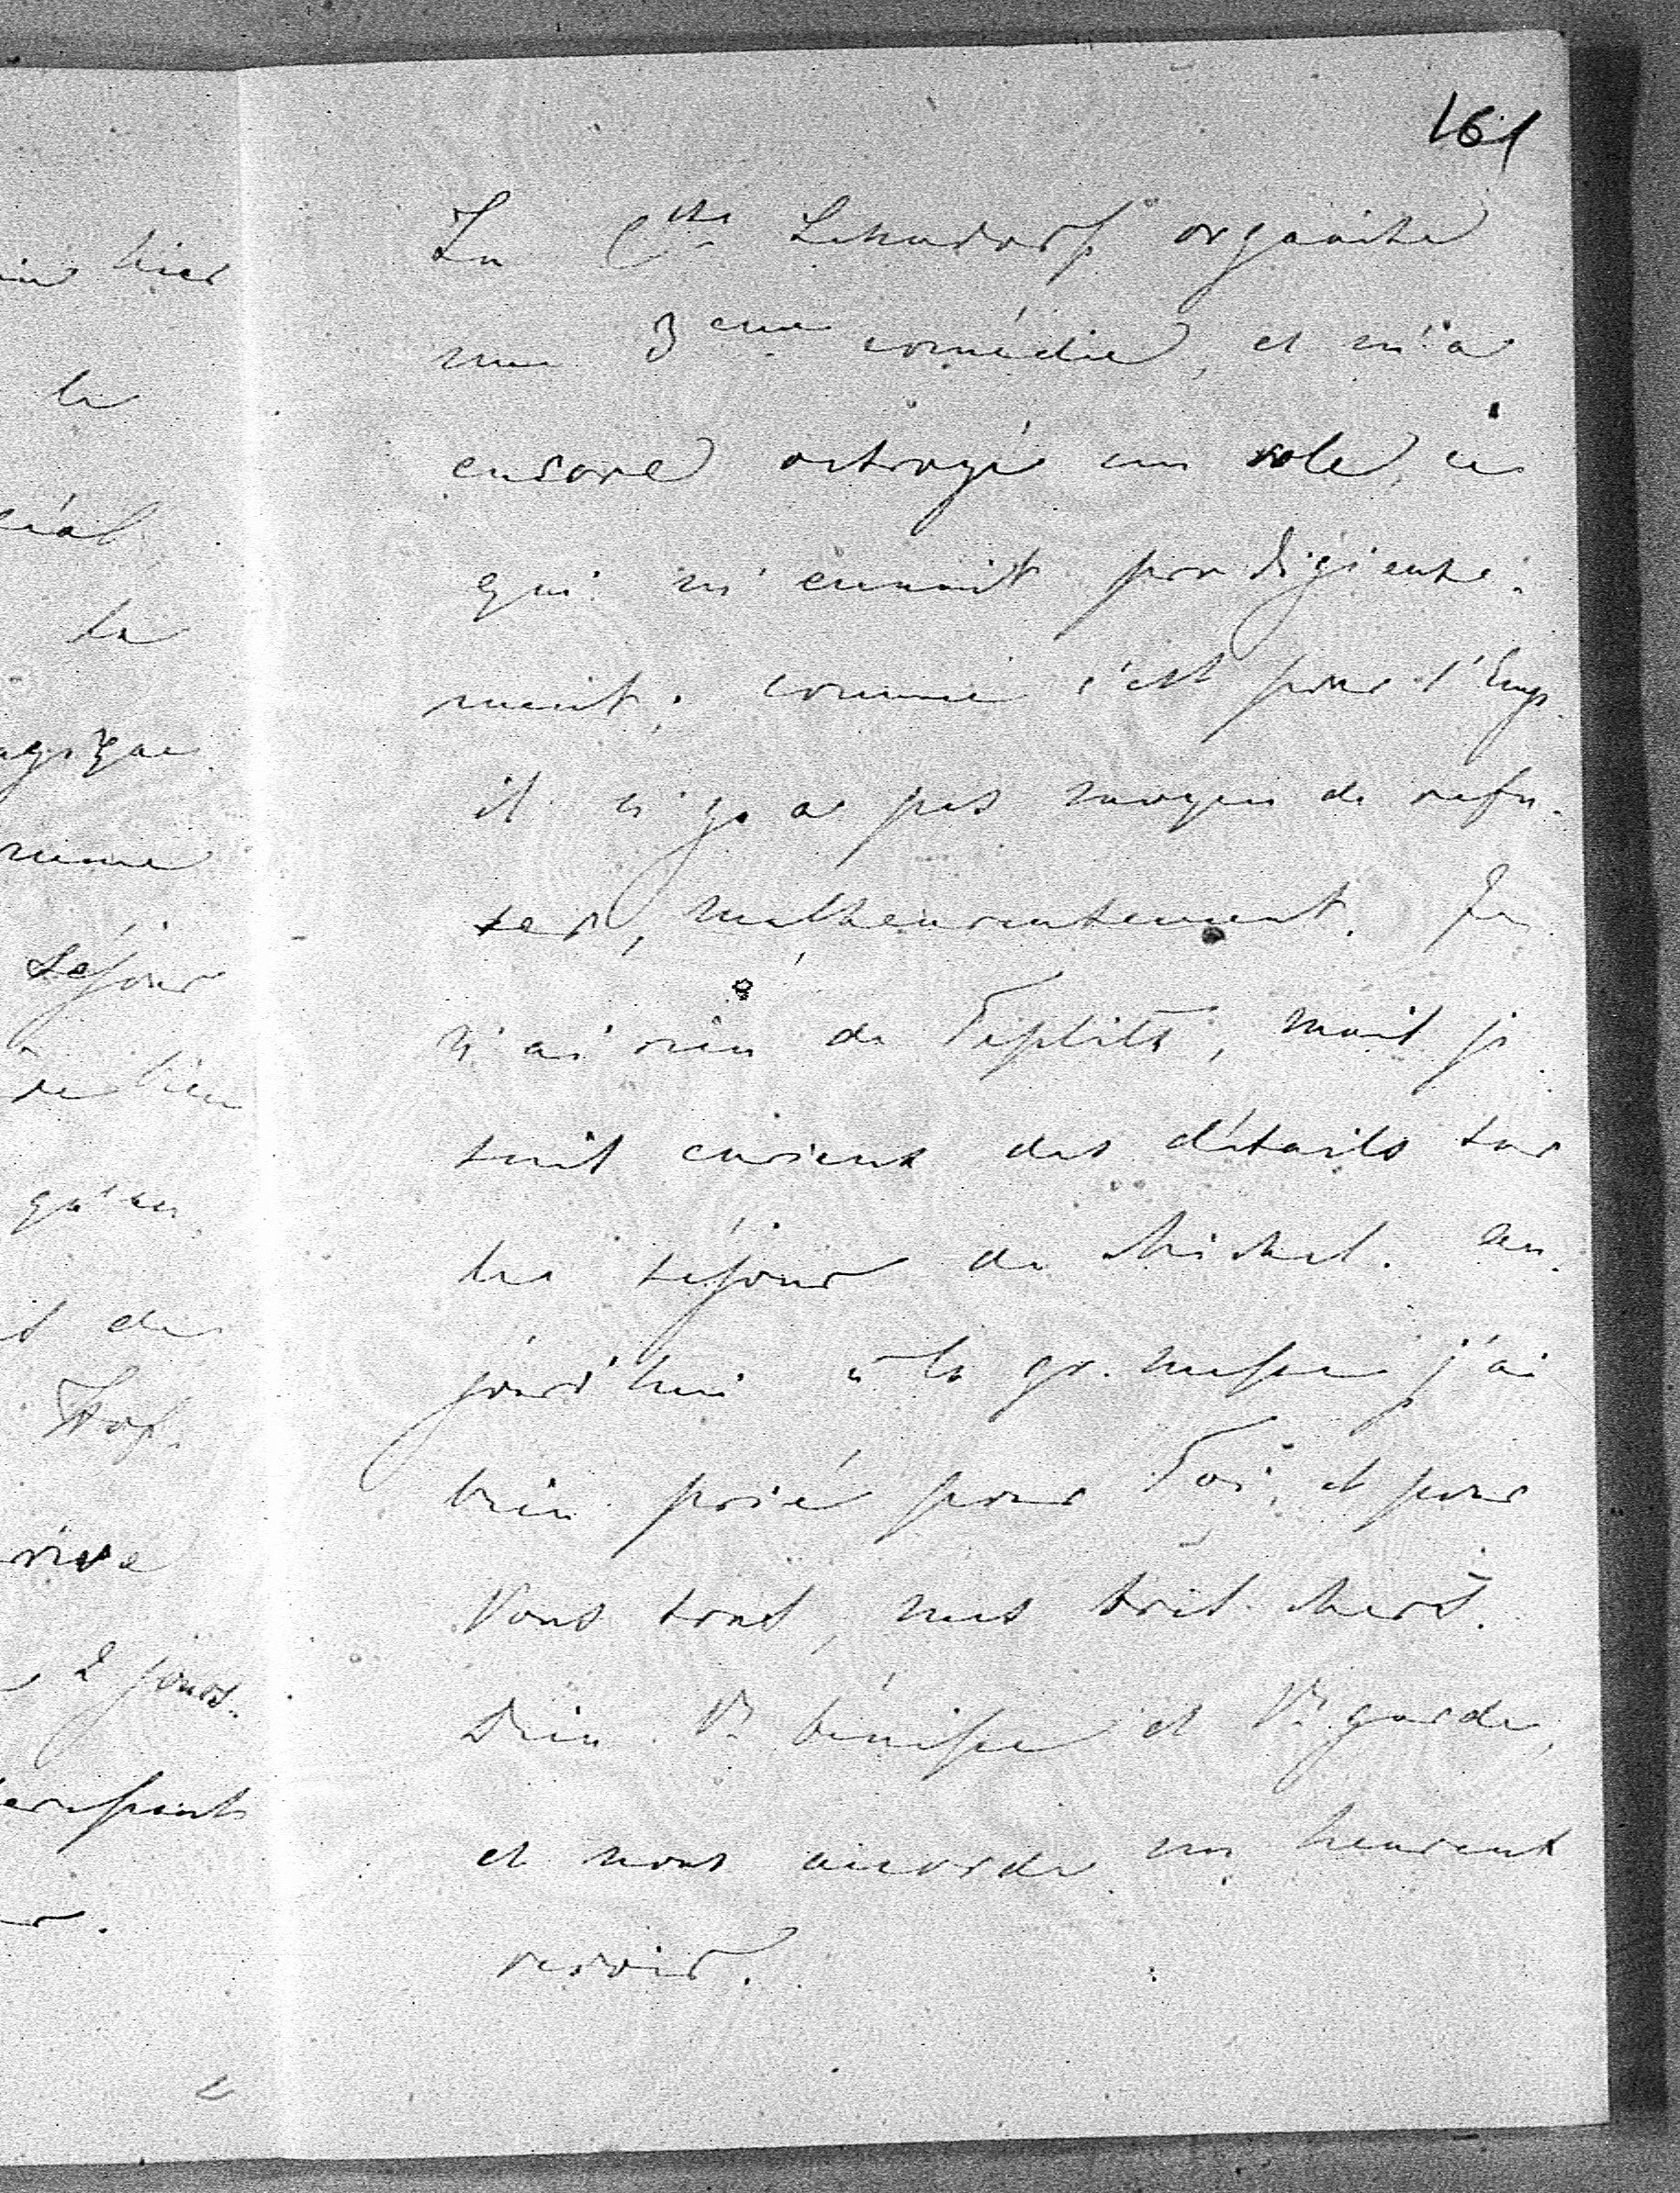 161
La C^tesse Lehndorf organise
une 3^eme comédie, et m'a
encore octroyé un role, ce
qui m'ennuit prodigieuse-
ment; comme c'est pour l'Emp.
il n'y a pas moyen de refu-
ser, malheureusement. Je
n'ai rien de Töplitz, mais je
suis curieux des détails sur
le séjour de Michel. Au-
jourd'hui à la gr. messe j'ai
bien prié pour Toi, et pour
Vous tous, mes trois chers.
Dieu V. bénisse et V. garde,
et nous accorde un heureux
revoir.
hier
la
la
séjour
bien
qu'en
2 jours.